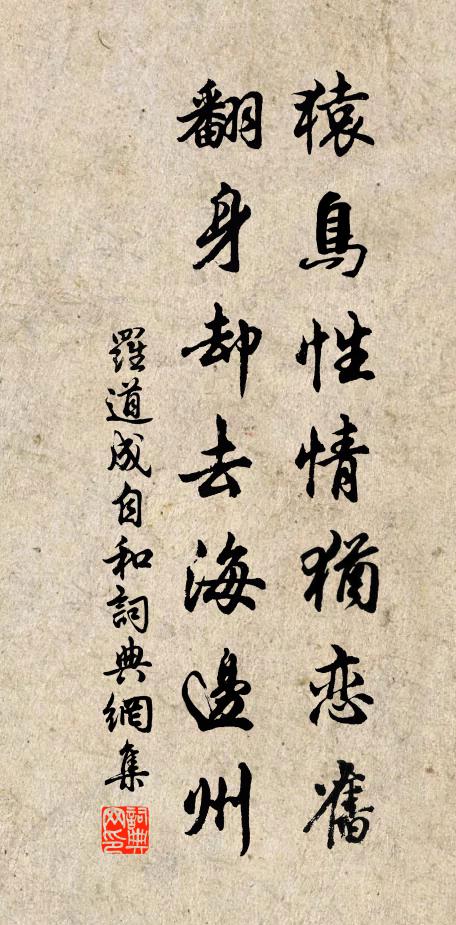 猿鳥性情猶恋舊
翻身却去海邊州
羅道成自和詞典網集
詞典網印